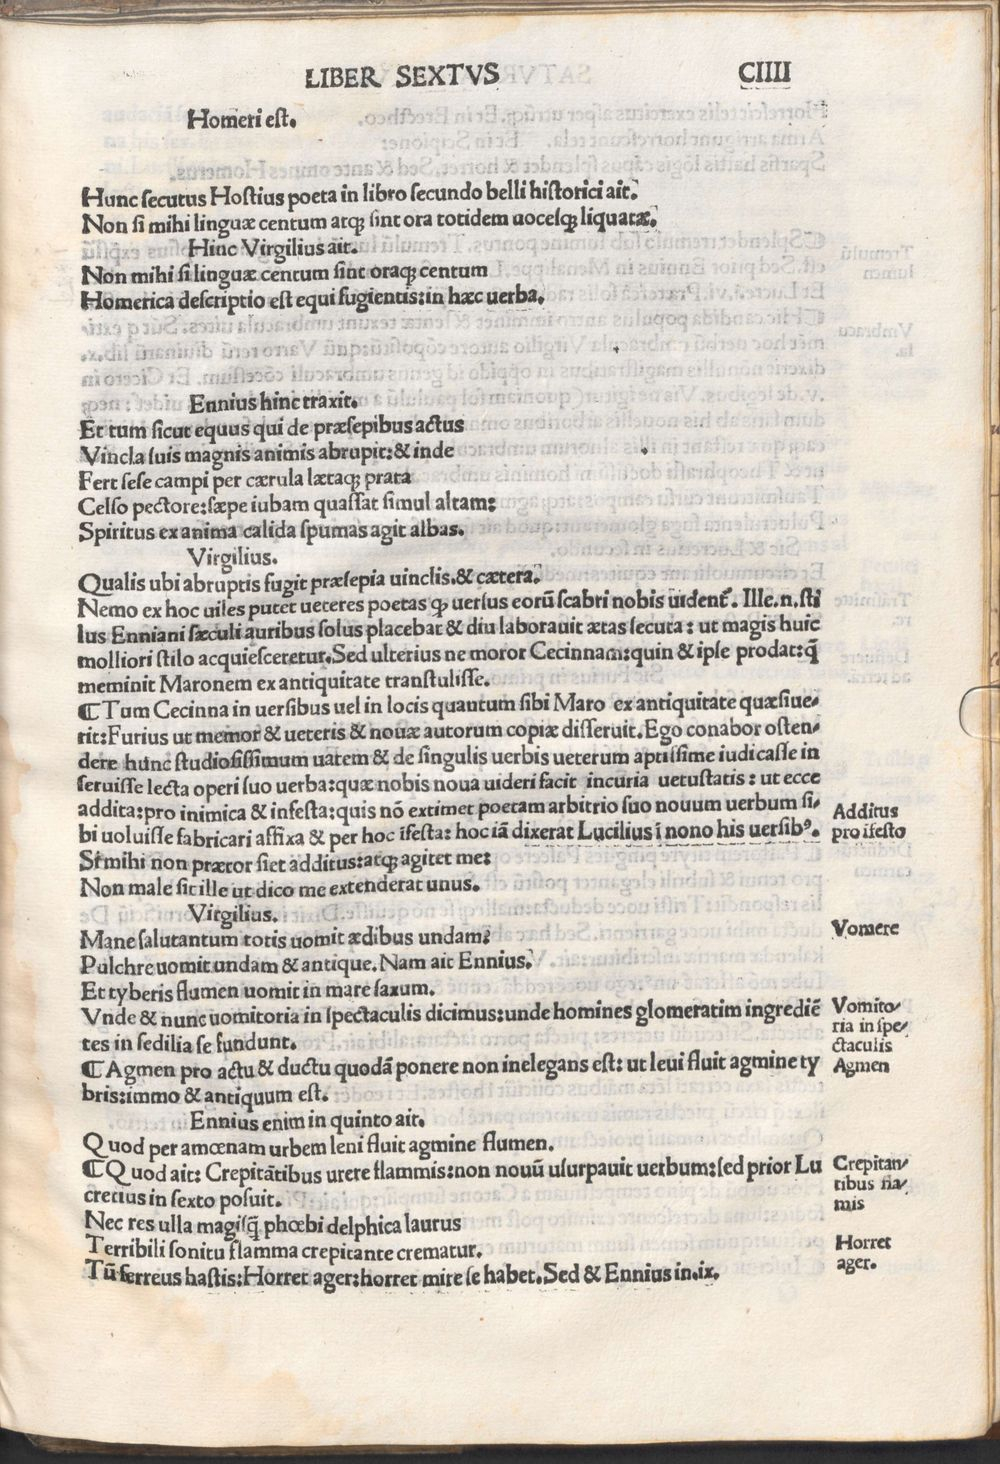 LIBER SEXTVS CIIII
Homeri est.
Hunc secutus Hostius poeta in libro secundo belli historici ait.
Non si mihi linguæ centum atqꝫ sint ora totidem uocesqꝫ liquatæ.
Hinc Virgilius ait.
Non mihi si linguæ centum sint oraqꝫ centum
Homerica descriptio est equi fugientis:in hæc uerba.
Ennius hinc traxit.
Et tum sicut equus qui de præsepibus actus
Vincla suis magnis animis abrupit:& inde
Fert sese campi per cærula lætaqꝫ prata
Celso pectore:sæpe iubam quassat simul altam:
Spiritus ex anima calida spumas agit albas.
Virgilius.
Qualis ubi abruptis fugit præsepia uinclis.& cætera.
Nemo ex hoc uiles putet ueteres poetas qꝫ uersus eorū scabri nobis uident᷑. Ille.n.sti
lus Enniani sæculi auribus solus placebat & diu laborauit ætas secuta: ut magis huic
molliori stilo acquiesceretur.Sed ulterius ne moror Cecinnam:quin & ipse prodat:q̄
meminit Maronem ex antiquitate transtulisse.
¶Tum Cecinna in uersibus uel in locis quantum sibi Maro ex antiquitate quæsiue-
rit:Furius ut memor & ueteris & nouæ autorum copiæ disseruit.Ego conabor osten-
dere hunc studiosissimum uatem & de singulis uerbis ueterum aptissime iudicasse in
seruisse lecta operi suo uerba:quæ nobis noua uideri facit incuria uetustatis: ut ecce
addita:pro inimica & infesta:quis nō extimet poetam arbitrio suo nouum uerbum si-
bi uoluisse fabricari affixa & per hoc īfesta: hoc iā dixerat Lucilius ī nono his uersibꝰ.
Additus
pro ifesto
Si mihi non prætor siet additus:atqꝫ agitet me:
Non male sit ille ut dico me extenderat unus.
Virgilius.
Mane salutantum totis uomit ædibus undam:
Vomere
Pulchre uomit undam & antique.Nam ait Ennius.
Et tyberis flumen uomit in mare saxum.
Vnde & nunc uomitoria in spectaculis dicimus:unde homines glomeratim ingrediē
tes in sedilia se fundunt.
Vomito-
ria in spe-
ctaculis
¶Agmen pro actu & ductu quodā ponere non inelegans est: ut leui fluit agmine ty
bris:immo & antiquum est.
Agmen
Ennius enim in quinto ait.
Quod per amœnam urbem leni fluit agmine flumen.
¶Quod ait: Crepitātibus urere flammis:non nouū usurpauit uerbum:sed prior Lu
cretius in sexto posuit.
Crepitan-
tibus fla-
mis
Nec res ulla magisq̄ phœbi delphica laurus
Terribili sonitu flamma crepitante crematur.
Tū ferreus hastis:Horret ager:horret mire se habet.Sed & Ennius in.ix.
Horret
ager.